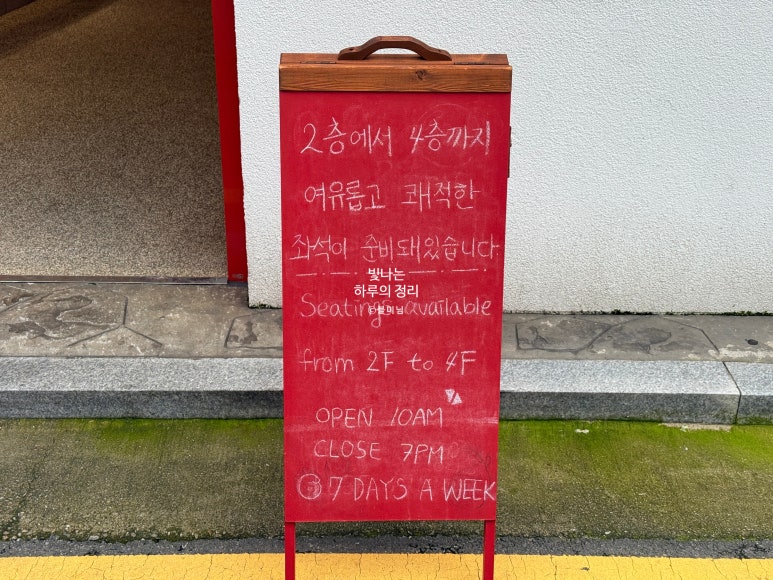 2층에서 4층까지
여유롭고 쾌적한
좌석이 준비돼있습니다
빛나는
하루의 정리
Seatings available
from 2F to 4F
OPEN 10AM
CLOSE 7PM
7 DAYS A WEEK